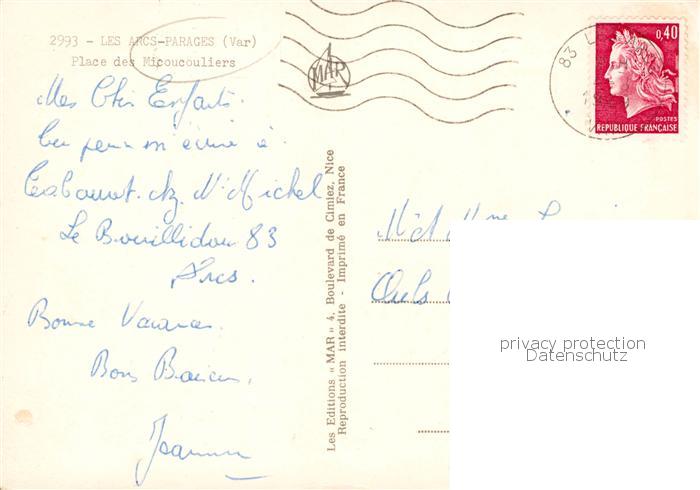 2993 - LES ARCS-PARAGES (Var)
Place des Micoucouliers
Mes Cher Enfants.
M'écrire à
chz. Mr Michel
Le Bouillidou 83
Arcs.
Bonne Vacances
Bons Baisers,
MAR
Les Editions « MAR » 4, Boulevard de Cimiez, Nice
Reproduction interdite - Imprimé en France
83
0,40
POSTES
REPUBLIQUE FRANÇAISE
M et Mme
privacy protection
Datenschutz